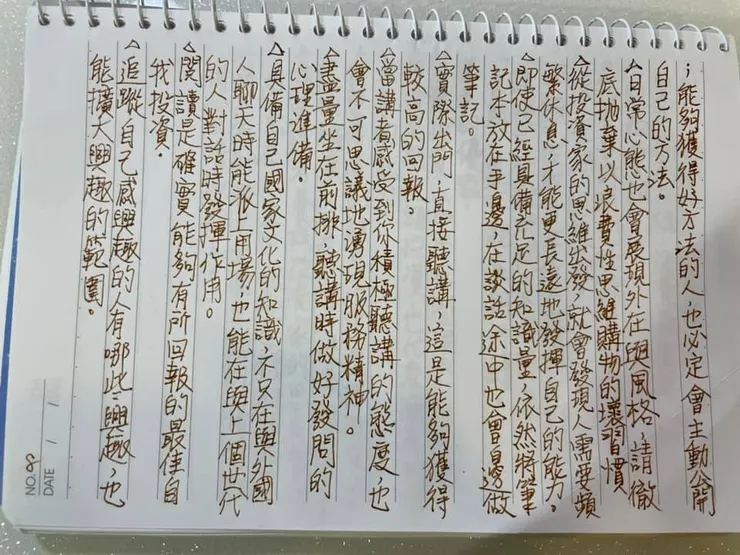 ；能夠獲得好方法的人，也必定會主動公開
自己的方法。
△日常心態也會展現外在與風格，請徹
底拋棄以浪費性思維購物的壞習慣
△從投資家的思維出發，就會發現人需要頻
繁休息，才能更長遠地發揮自己的能力。
△即使已經具備充足的知識量，依然將筆
記本放在手邊，在談話途中也會邊做
筆記。
△實際出門，直接聽講，這是能夠獲得
較高的回報。
△當講者感受到你積極聽講的態度，也
會不可思議地湧現服務精神。
△盡量坐在前排，聽講時做好發問的
心理準備。
△具備自己國家文化的知識，不只在與外國
人聊天時能派上用場，也能在與上個世代
的人對話時發揮作用。
△閱讀是確實能夠有所回報的最佳自
我投資。
△追蹤自己感興趣的人有哪些興趣，也
能擴大興趣的範圍。
NO. 8
DATE / /